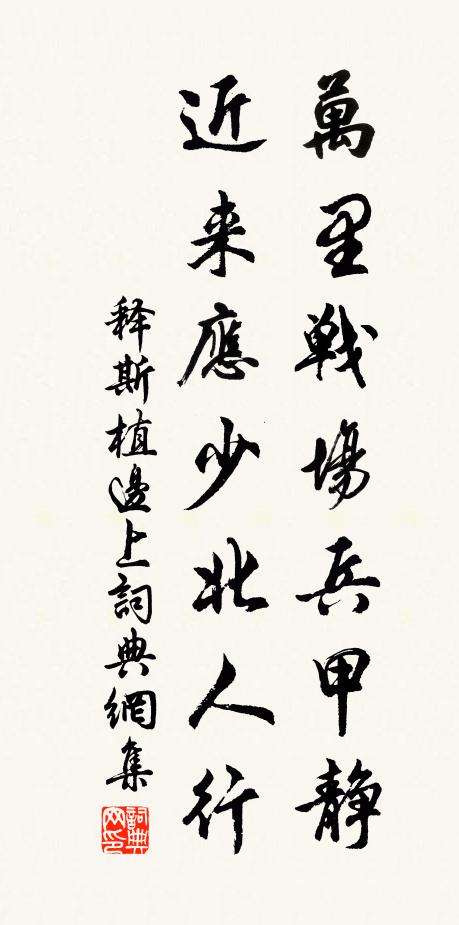 萬里戰場兵甲靜
近来應少北人行
释斯植邊上詞典網集
詞典網印